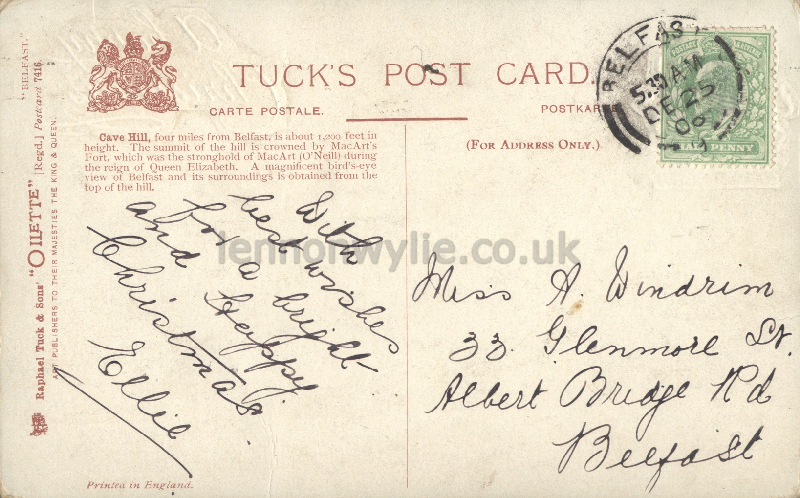 "BELFAST."
Raphael Tuck & Sons' "OILETTE" [Regd.] Postcard 7416
ART PUBLISHERS TO THEIR MAJESTIES THE KING & QUEEN.
TUCK'S POST CARD.
CARTE POSTALE.
POSTKARTE
Cave Hill, four miles from Belfast, is about 1,200 feet in
height. The summit of the hill is crowned by MacArt's
Fort, which was the stronghold of MacArt (O'Neill) during
the reign of Queen Elizabeth. A magnificent bird's-eye
view of Belfast and its surroundings is obtained from the
top of the hill.
(FOR ADDRESS ONLY.)
BELFAST
5.30 AM
DE 25
08
POSTAGE
HALFPENNY
With
best wishes
for a bright
and Happy
Christmas
Ellie
Miss A. Windrim
33 Glenmore St.
Albert Bridge Rd
Belfast
lennonwylie.co.uk
Printed in England.